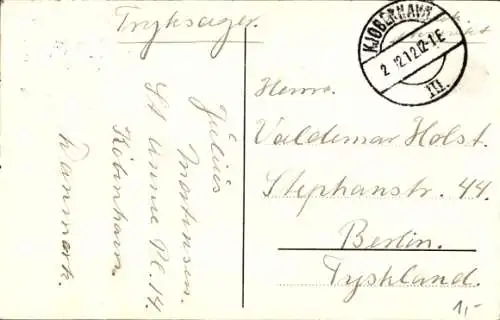 Tryksager.
KJØBENHAVN
2.12.12.12-1E
III.
Herrn.
Valdemar Holst.
Stephanstr. 44.
Berlin.
Tyskland.
Julius
Mortensen.
St Annæ Pl. 14.
Købinhavn.
Danmark.
1,-